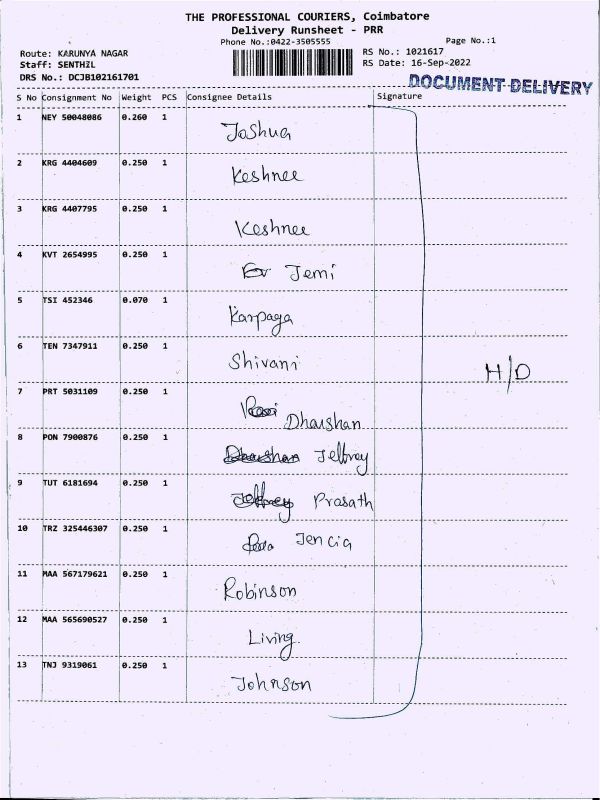 THE PROFESSIONAL COURIERS, Coimbatore
Delivery Runsheet - PRR
Phone No.:0422-3505555 Page No.:1
Route: KARUNYA NAGAR RS No.: 1021617
Staff: SENTHIL RS Date: 16-Sep-2022
DRS No.: DCJB102161701
DOCUMENT DELIVERY
S No Consignment No Weight PCS Consignee Details Signature
1 NEY 50048086 0.260 1 Joshua
2 KRG 4404609 0.250 1 Keshnee
3 KRG 4407795 0.250 1 Keshnee
4 KVT 2654995 0.250 1 Jemi
5 TSI 452346 0.070 1 Karpaga
6 TEN 7347911 0.250 1 Shivani
H/D
7 PRT 5031109 0.250 1 Dharshan
8 PON 7900876 0.250 1 Dharshan Jeffrey
9 TUT 6181694 0.250 1 Jeffrey Prasath
10 TRZ 325446307 0.250 1 Jencia
11 MAA 567179621 0.250 1 Robinson
12 MAA 565690527 0.250 1 Living
13 TNJ 9319061 0.250 1 Johnson